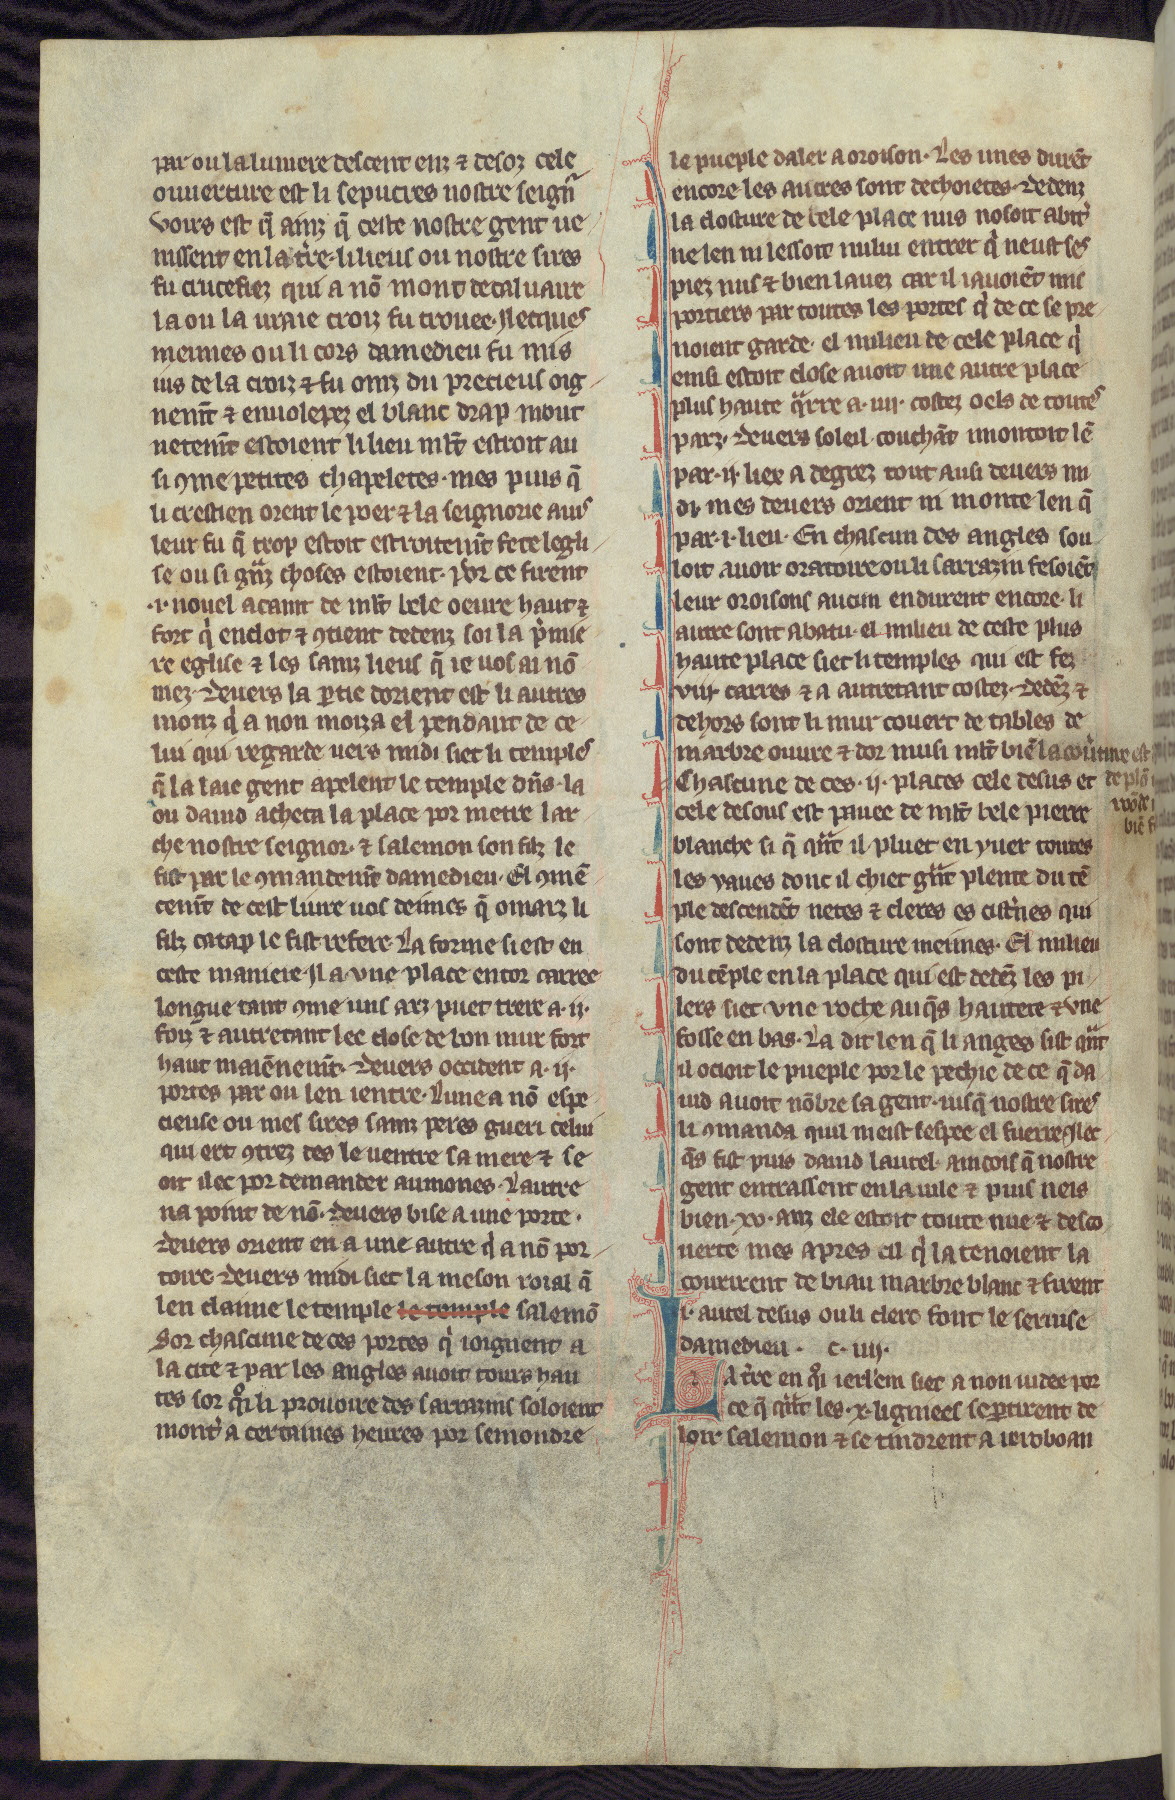 par ou la lumiere descent enz ⁊ desoz cele
ouuerture est li sepucres nostre seignr̃
voirs est q̃ ainz q̃ ceste nostre gent ue
nissent en la t̾re· li lieus ou nostre sires
fu crucefiez qui a nõ mont de caluaire
la ou la uraie croiz fu trouee· Jlecques
meimes ou li cors damedieu fu mis
ius de la croiz ⁊ fu oinz du precieus oig
nem̃t ⁊ enuolepez el blanc drap mout
netem̃t estoient li lieu ml̃t estroit au
si ꝯme petites chapeletes· mes puis q̃
li crestien orent le poer ⁊ la seignorie auis
leur fu q̃ trop estoit estroitem̃t fete legli
se ou si gñz choses estoient· por ce firent
·i· nouel acaint de ml̃t bele oeure haut ⁊
fort q̾ enclot ⁊ ꝯtient dedenz soi la p̾mie
re eglise ⁊ les sainz lieus q̃ ie uos ai nõ
mez· Deuers la ꝑtie dorient est li autres
monz q̾ a non moria el pendant de ce
lui qui regarde uers midi siet li temples
q̃ la laie gent apelent le temple dñs· la
ou dauid acheta la place por metre lar
che nostre seignor· ⁊ salemon son filz le
fist par le ꝯmandem̃t damedieu· El ꝯmẽ
cem̃t de cest liure uos deimes q̃ omarz li
filz catap le fist refere· La forme si est en
ceste maniere· Jl a vne place entor carree
longue tant ꝯme uns arz puet trere a ·ii·
foiz ⁊ autretant lee close de bon mur fort
haut maiẽnem̃t· Deuers occident a ·ii·
portes par ou len i entre· Lune a nõ espe
cieuse ou mes sires sainz peres gueri celui
qui ert ꝯtrez des le uentre sa mere ⁊ se
oit ilec por demander aumones· Lautre
na point de nõ· Deuers bise a une porte·
Deuers orient en a une autre q̾ a nõ por
toire Deuers midi siet la meson roial q̃
len claime le temple le temple salemõ
Sor chascune de ces portes q̾ ioignent a
la cite ⁊ par les angles auoit tours hau
tes sor q̾i li prouoire des sarrazins soloient
mont̾ a certaines heures por semondre
le pueple daler a oroison· Les unes durẽt
encore les autres sont dechoietes· Dedenz
la closture de cele place nus nosoit abit̾
ne len ni lessoit nului entrer q̾ neust ses
piez nus ⁊ bien lauez car il i auoiẽt mis
portiers par toutes les portes q̾ de ce se pre
noient garde· el milieu de cele place q̾
einsi estoit close auoit une autre place
plus haute q̃rre a ·iiii· costez oels de toutes
parz· Deuers soleil couchãt i montoit lẽ
par ·ii· liex a degrez tout ausi deuers mi
di· mes deuers orient ni monte len q̃
par ·i· lieu· En chascun des angles sou
loit auoir oratoire ou li sarrazin fesoiẽt
leur oroisons aucun en durent encore· li
autre sont abatu· el milieu de ceste plus
haute place siet li temples qui est fez
viii· carres ⁊ a autretant costez· Dedẽz ⁊
dehors sont li mur couert de tables de
marbre ouure ⁊ dor musi ml̃t biẽ la cou̾ture est
de plõ
roõde
biẽ f
Chascune de ces ·ii· places cele desus et
cele desous est pauee de ml̃t bele pierre
blanche si q̃ qñt il pluet en yuer toutes
les yaues dont il chiet gñt plente du tẽ
ple descendẽt netes ⁊ cleres es cist̾nes qui
sont dedenz la closture meimes· El milieu
du tẽple en la place qui est dedẽz les pi
lers siet vne roche auq̃s hautete ⁊ vne
fosse en bas· La dit len q̃ li anges sist qñt
il ocioit le pueple por le pechie de ce q̃ da
uid auoit nõbre sa gent· iusq̃ nostre sires
li ꝯmanda quil meist sespee el fuerre Jlec
q̃s fist puis dauid lautel· aincois q̃ nostre
gent entrassent en la uile ⁊ puis neis
bien ·xv· anz ele estoit toute nue ⁊ desco
uerte mes apres cil q̾ la tenoient la
courirent de biau marbre blanc ⁊ firent
i· autel desus ou li clerc font le seruise
damedieu· c· iiii·
La t̾re en q̾i ierl̾em siet a non iudee por
ce q̃ qñt les ·x· ligniees se ꝑtirent de
loir salemon ⁊ se tindrent a ieroboan